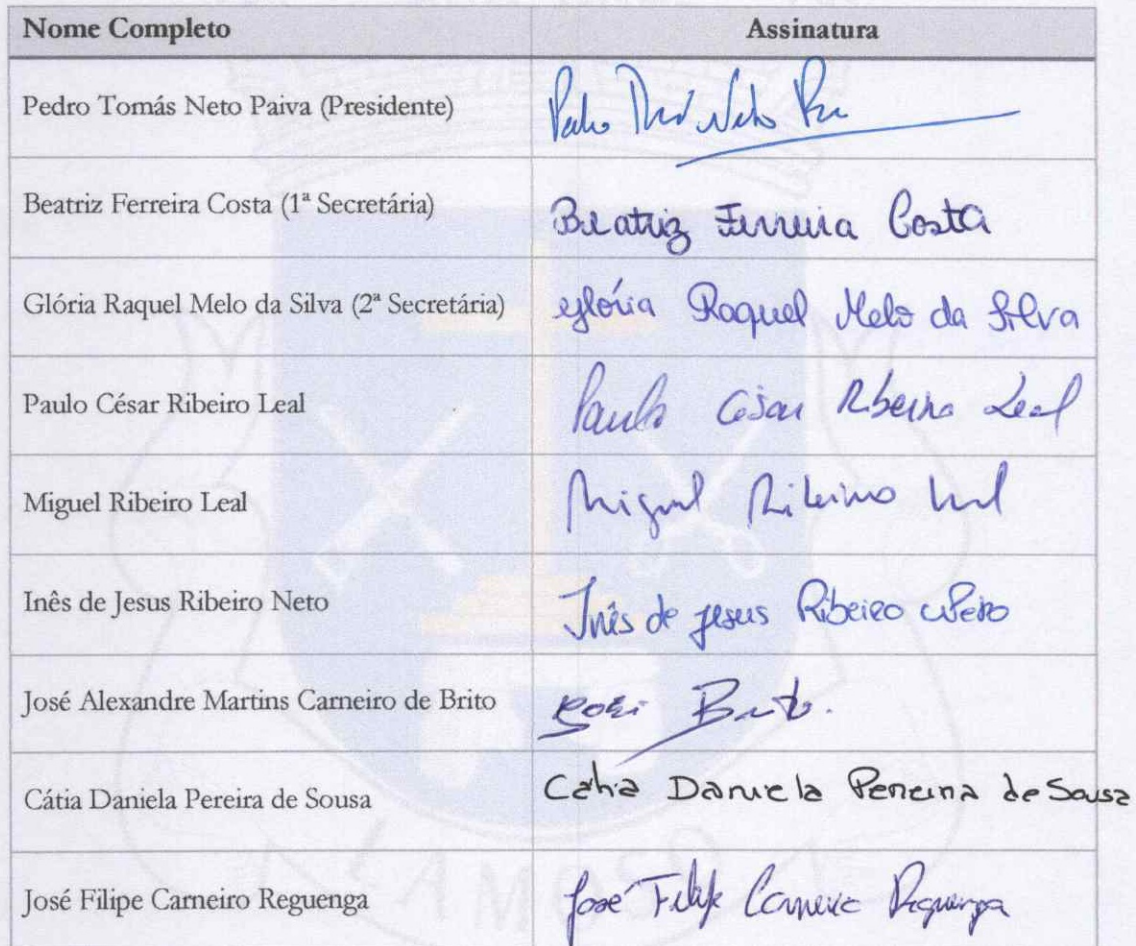 Nome Completo Assinatura
Pedro Tomás Neto Paiva (Presidente) Pedro Neto
Beatriz Ferreira Costa (1ª Secretária) Beatriz Ferreira Costa
Glória Raquel Melo da Silva (2ª Secretária) Glória Raquel Melo da Silva
Paulo César Ribeiro Leal Paulo César Ribeiro Leal
Miguel Ribeiro Leal Miguel Ribeiro Leal
Inês de Jesus Ribeiro Neto Inês de Jesus Ribeiro Neto
José Alexandre Martins Carneiro de Brito José Brito.
Cátia Daniela Pereira de Sousa Cátia Daniela Pereira de Sousa
José Filipe Carneiro Reguenga José Filipe Carneiro Reguenga
LAMOSO